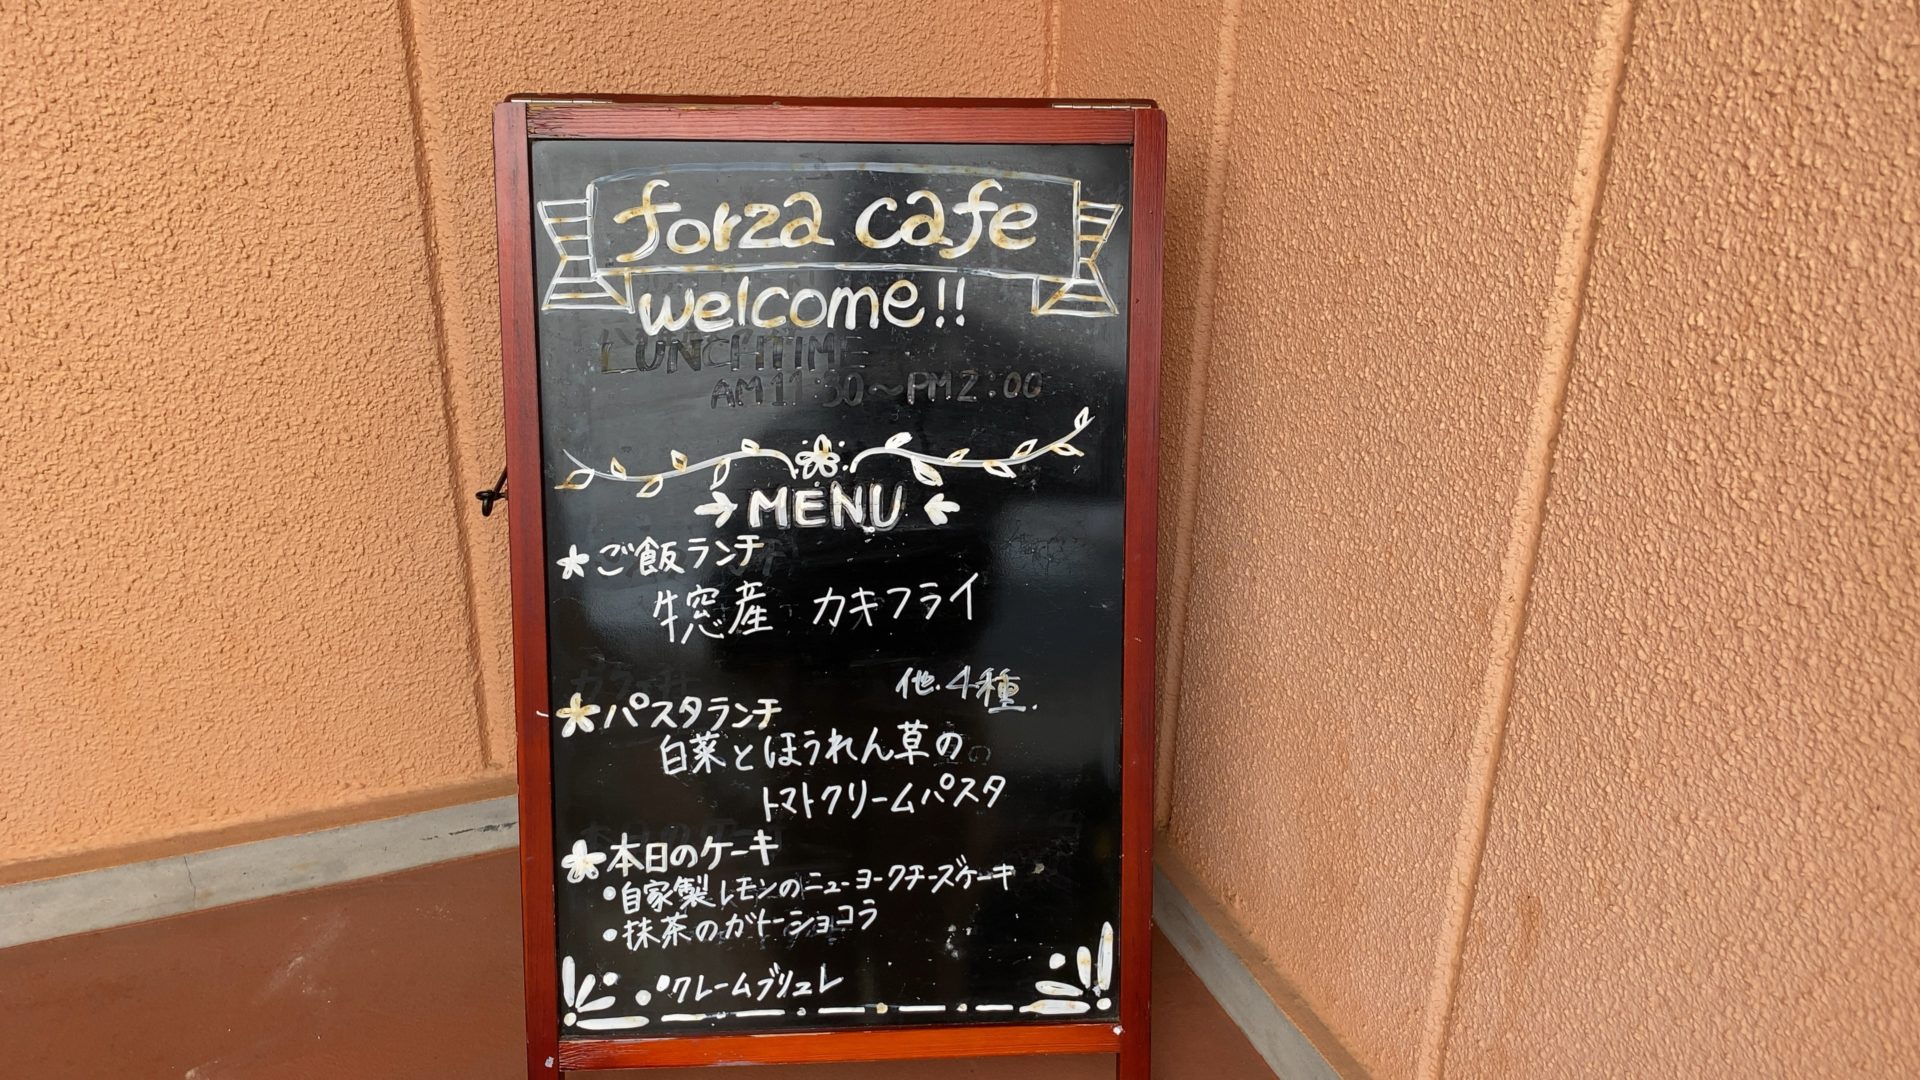 forza cafe
welcome!!
LUNCHTIME
AM11:30～PM2:00
→MENU←
ご飯ランチ
牛窓産 カキフライ
他.4種.
パスタランチ
白菜とほうれん草の
トマトクリームパスタ
本日のケーキ
•自家製レモンのニューヨークチーズケーキ
•抹茶のガトーショコラ
•クレームブリュレ